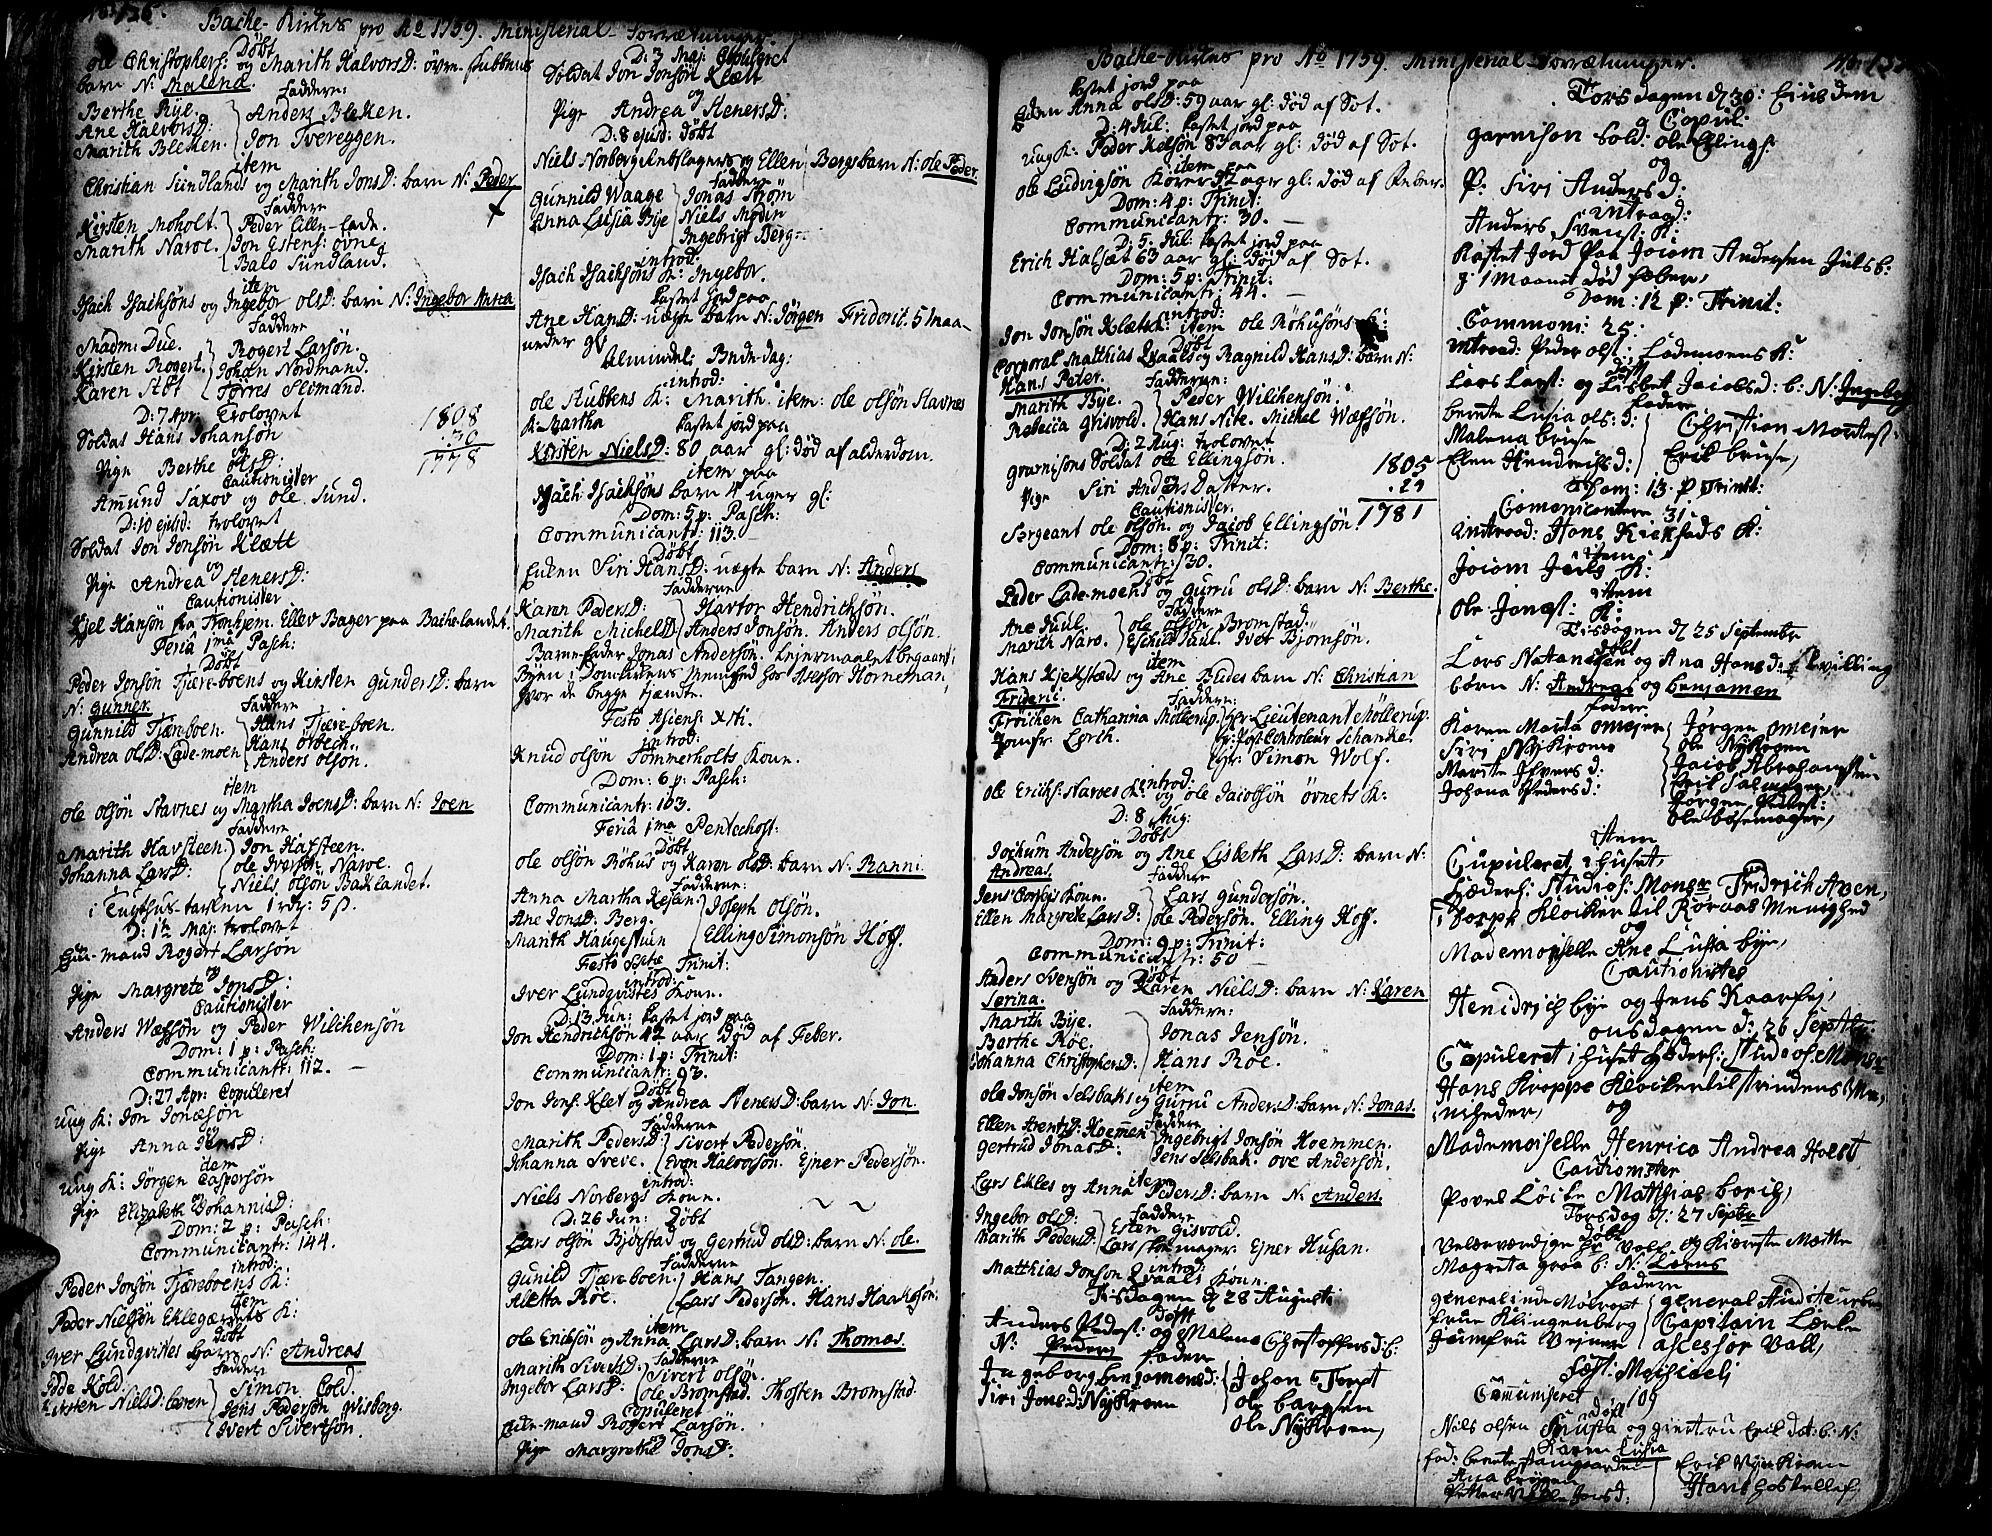 126.
Bache-Kirkes pro Ao 1759. Ministerial-Forrætninger.
Døbt
Ole Christophers: og Marith Halvors D: øvre-Stubbens
barn N: Malena.
Faddere:
Berthe Bye. Anders Bleken.
Ane Halvors D: Jon Tvereggen.
Marith Bleken.
item
Christian Sundlands og Marith Jons D: barn N: Peder
Faddere
Kirsten Moholt. Peder Lillen-Lade.
Marith Naroe. Jon Estens: øvne.
Balo Sundland.
item
Isach Isachsøns og Ingebor ols D: barn N: Ingebor Anna
Faddere
Madm: Due. Rogert Larsøn.
Kirsten Rogert. Johan Nordmand.
Karen Støt Tørres Slimand.
D: 7 Apr: Trolovet
Soldat Hans Johansøn
og
Pige Berthe Ols D:
Cautionister
Amund Saxov og Ole Sund.
1808
.30
1778
D: 10 ejusd: trolovet
Soldat Jon Jonsøn Klætt
og
Pige Andrea Steners D:
Cautionister
Kjel Hansøn fra Tronhjem. Ellev Bager paa Bache-landet.
Feriâ 1ma Pasch:
Døbt
Peder Jonsøn Tjæreboens og Kirsten Gunders D: barn
N: Gunner.
Faddere
Gunnild Tjæreboen. Hans Tjære-boen.
Andrea ols D: Lade-moen Hans Ørbech.
Anders Olsøn.
item
Ole Olsøn Stavnes og Martha Joens D: barn N: Joen
Faddere
Marith Havsteen. Jon Havsteen.
Johanna Lars D: Ole Iversøn Naroe.
Niels Olsøn Baklandet.
i Tugthus-tavlen 1 rdr: 5 β.
D: 12 Maj: trolovet
Enke-mand Rogert Larsøn
og
Pige Margrete Jons D:
Cautionister
Anders Wæfsøn og Peder Wilchensøn
Dom: 1 p: Pasch:
Communicantr: 112.
D: 27 Apr: Copuleret
Ung K: Jon Jonæsøn
og
Pige Anna Jens D:
idem
Ung K: Jørgen Caspersøn
og
Pige Elizabeth Johannis D:
Dom: 2 p: Pasch:
Communicantr: 144.
introd:
Peder Jonsøn Tjæreboens K:
item
Peder Nielsøn Eklegærnets K:
Døbt
Iver Lundqvistes barn N: Andreas
Faddere
Ide Kold. Simon Cold.
Kirsten Niels D: bæren Jens Pedersøn Wisberg.
Ivert Sivertsøn.
D: 3 Maj: Copuleret
Soldat Jon Jonsøn Klætt
og
Pige Andrea Steners D:
D: 8 ejusd: Døbt
Niels Norberg Rebslagers og Ellen Bergs barn N: Ole Peder.
Faddere
Gunnild Waage Jonas Strøm
Anna Lusia Bye Niels Modin
Ingebrigt Berg
introd:
Isach Isachsøns K: Ingebor.
Kastet jord paa
Ane Hans D: uægte barn N: Jørgen Friderit. 5 Maa-
neder gl:
Almindel: Bede-dag:
introd:
Ole Stubbens K: Marith. item: Ole Olsøn Stavnes
K: Martha Kastet jord paa
Kirsten Niels D: 80 aar gl: død af alderdom.
item paa
Isach Isachsøns barn 4 uger gl:
Dom: 5 p: Pasch:
Communicantr: 113.
Døbt
Enken Siri Hans D: uægte barn N: Anders
Fadderne
Karen Peders D: Havtor Hendrichsøn.
Marith Michels D: Anders Jonsøn. Anders Olsøn.
Barne-fader Jonas Andersøn. Lejermaalet begaaet i
Byen i Dom-kirkens Menighed hos Assessor Horneman
hvor de begge tjændte.
Festo Ascens: Xsti.
introd:
Knud Olsøn Tømmerholts Koun.
Dom: 6 p: Pasch:
Communicantr: 103.
Feriâ 1ma Pentechost:
Døbt
Ole Olsøn Røhus og Karen ols D: barn N: Ranni.
Fadderne:
Anna Martha Resan: Joseph Olsøn.
Ane Jons D: Berg. Elling Simonsøn Høff.
Marith Haugestuen
Festo Sstæ Trinit:
introd:
Iver Lundqvistes Koun.
D: 13 Jun: Kastet jord paa
Jon Hendrichsøn 42 aar Død af Feber.
Dom: 1 p: Trinit:
Communicantr: 93.
Døbt
Jon Jons: Klet og Andrea Steners D: barn N: Jon.
Fadderne
Marith Peders D: Sivert Pedersøn.
Johanna Sveve. Even Halvorsøn. Ejner Pedersøn.
introd:
Niels Norbergs Koun.
D: 26 Jun: Døbt
Lars Olsøn Bjørstad og Gertrud ols D: barn N: Ole.
Fadderne
Gunild Tjære-boen. Hans Tangen.
Aletta Røe. Lars Pedersøn. Hans Haakosøn.
item
Ole Erichsøn og Anna Lars D: barn N: Thomas.
Fadderne
Marith Sivers D: Sivert Olsøn.
Ingebor Lars D: Ole Bromstad. Thosten Bromstad.
Copuleret
Enke-mand Rogert Larsøn.
og
Pige Margrethe Jons D:
Bache-Kirkes pro Ao 1759. Ministerial-Forrætninger.
Kastet jord paa
Enken Anna ols D: 59 aar gl: død af Sot.
D: 4 Jul: Kastet jord paa
Ung K: Peder Kelsøn 83 aar gl: død af Sot.
item paa
Ole Ludvigsøn Korer 32 aar gl: død af Feber.
Dom: 4 p: Trinit:
Communicantr: 30.
D: 5. Jul: Kastet jord paa
Erich Halsæt 63 aar gl: død af Sot.
Dom: 5 p: Trinit:
Communicantr: 44.
introd:
Jon Jonsøn Klætts K: item Ole Røhusøns K:
Døbt
Corporal Matthias Qvaals og Ragnild Hans D: barn N:
Hans Peter.
Fadderne:
Marith Bye. Peder Wilchensøn.
Rebecca Grisvold. Hans Nite. Michel Wæfsøn.
D: 2 Aug: trolovet
Gvarnisons Soldat Ole Ellingsøn.
og
Pige Siri Anders Datter.
Cautionister.
Sergeant Ole Olsøn. og Jacob Ellingsøn
1805
.24
1781
Dom: 8 p: Trinit:
Communicantr: 130.
Døbt
Peder Lade-moens og Gurru ols D: barn N: Berthe.
Faddere
Ane Juul. Ole Olsøn Bromstad.
Marith Naro. Eschild Juul. Iver Bjørnsøn.
item
Hans Kjelstads og Ane Bledes barn N: Christian
Frideric.
Faddere:
Frøichen Catharina Møllerup. Hr: Lieutenant Møllerup.
Jomfr: Lorch. Hr: Post-Controleur Schancke.
Hr: Simon Wolf.
introd:
Ole Erichs: Narves K: og Ole Jacobsøn Øvnets K:
D: 8 Aug:
Døbt
Jochum Andersøn og Ane Lisbeth Lars D: barn N:
Andreas.
Faddere
Jens Borchs Koun. Lars Gundersøn.
Ellen Margrete Lars D: Ole Pedersøn. Elling Hoff.
Dom: 9 p: Trinit:
Communicantr: 50
Døbt
Anders Svensøn og Karen Niels D: barn N: Karen
Serina.
Faddere:
Marith Bye. Jonas Jensøn.
Berthe Røe. Hans Røe.
Johanna Christophers D:
item
Ole Jonsøn Selsbaks og Gurru Anders D: barn N: Jonas.
Faddere
Ellen Arents D: Hoemmen Ingebrigt Jonsøn Hoemmen.
Gertrud Jonas D: Jens Selsbak. Ove Andersøn.
item
Lars Ekles og Anna Peders D: barn N: Anders.
Faddere
Ingebor ols D: Esten Gisvold.
Marith Peders D: Lars Skomager. Ejner Husan.
introd:
Matthias Jonson Qvaals Koun.
Tisdagen d 28 Augusti
Døbt
Anders Pedes: og Malene Chrestoffers d: b:
N: Peder,
Fadere
Ingeborg Benjomens d: Johan Torpt
Siri Jens d: Nykroen Ole Bargen
Ole Nykroen,
Torsdagen d 30: Eiusdem
Copul:
Garnison Sold: Ole Ellings:
og
P: Siri Anders d:
Introd:
Anders Svens: K:
Kastet Jord Paa Joiom Andersen Juls b:
1 Maanet død Feber,
Dom: 12 p: Trinit:
Commoni: 25.
Introd: Peder Ols: Lademoens K:
Døbt
Lars Lars: og Lisbet Jacobs d: b: N: Ingeborg
Fadere
Berete Lusia Ols: d: Christian Mortes:
Malena Bruse Erik Bruse,
Elen Hendrichs d:
Dom: 13. P Trinit:
Comonicantere 31
Introd: Hans Kiekstads K:
Item
Joiom Juls K:
Item
Ole Jons: K:
Tisdagen d 25 September
Døbt
Lars Natanelsen og Ana Hans d: Tvilling
børn N: Andreas og Benjamen
Fadere
Karen Maria Omejer Jørgen Omejer
Siri Nykroen Ole Nykroen
Marite Ifvers d: Jacob Abrahamsen
Johana Peders d: Erik Salmager,
Jørgen Peders:
Ole Bosemager,
Item
Cupuleret i Huset,
Hæders: Studios: Monsr Fridrich Aven,
Torpe Klocker til Røraas Menighed
og
Mademoiselle Ane Lusia Bye,
Cautionister
Henidrich Bye og Jens Kaarsej,
Onsdagen d: 26 Septbr:
Copuleret i Huset Hæders: Studios Monsr
Hans Kroppe Klocker til Strindens Me-
nigheder,
og
Mademoiselle Henrica Andrea Holst
Cautionister
Povel Locke Matthias Borch,
Torsdag d: 27 Septbr
Døbt
Velærværdige Hr Volf og Kiæreste Mætte
Magreta Graa b: N: Lorens
Fadere
Generalinde Molropt General Auditeur
Frue Klingenberg Capitain Lerke
Jumfru Vejner Assessor Vall,
Fest: Michaeli
Communiceret 109
Døbt
Nils Olsen Knusta og Giertru Erik dat: b: N:
Karen Lusia
Fad: Berete Damgaarden Erik Nykroen
Ana Brøgen Hans Hoskellef,